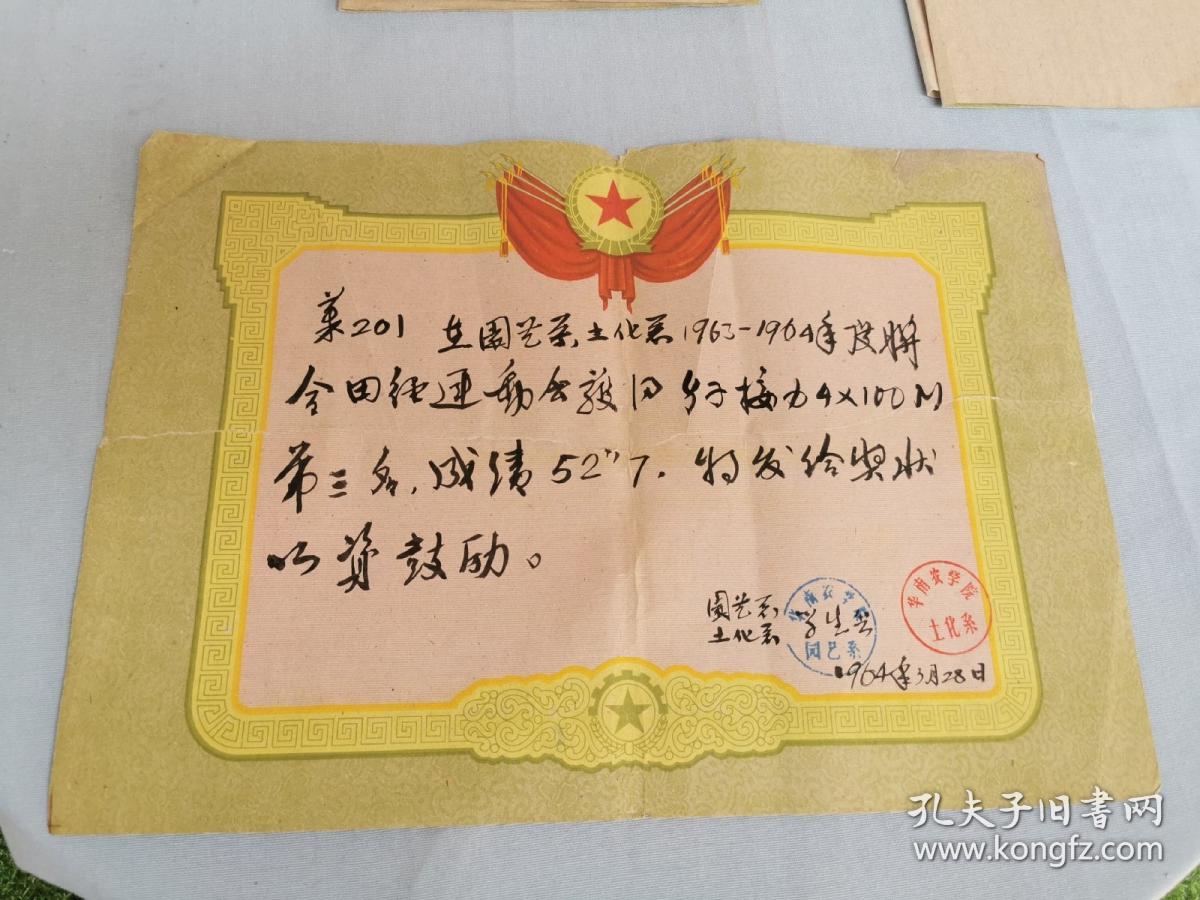 菓201 在園艺系土化系1963-1964年度联
合田径运動会获得 男子接力4×100M
第三名,成绩52"7.特发给奖状
以资鼓励。
園艺系
土化系 学生会
1964年3月28日
华南农学院
园艺系
华南农学院
土化系
孔夫子旧书网
www.kongfz.com